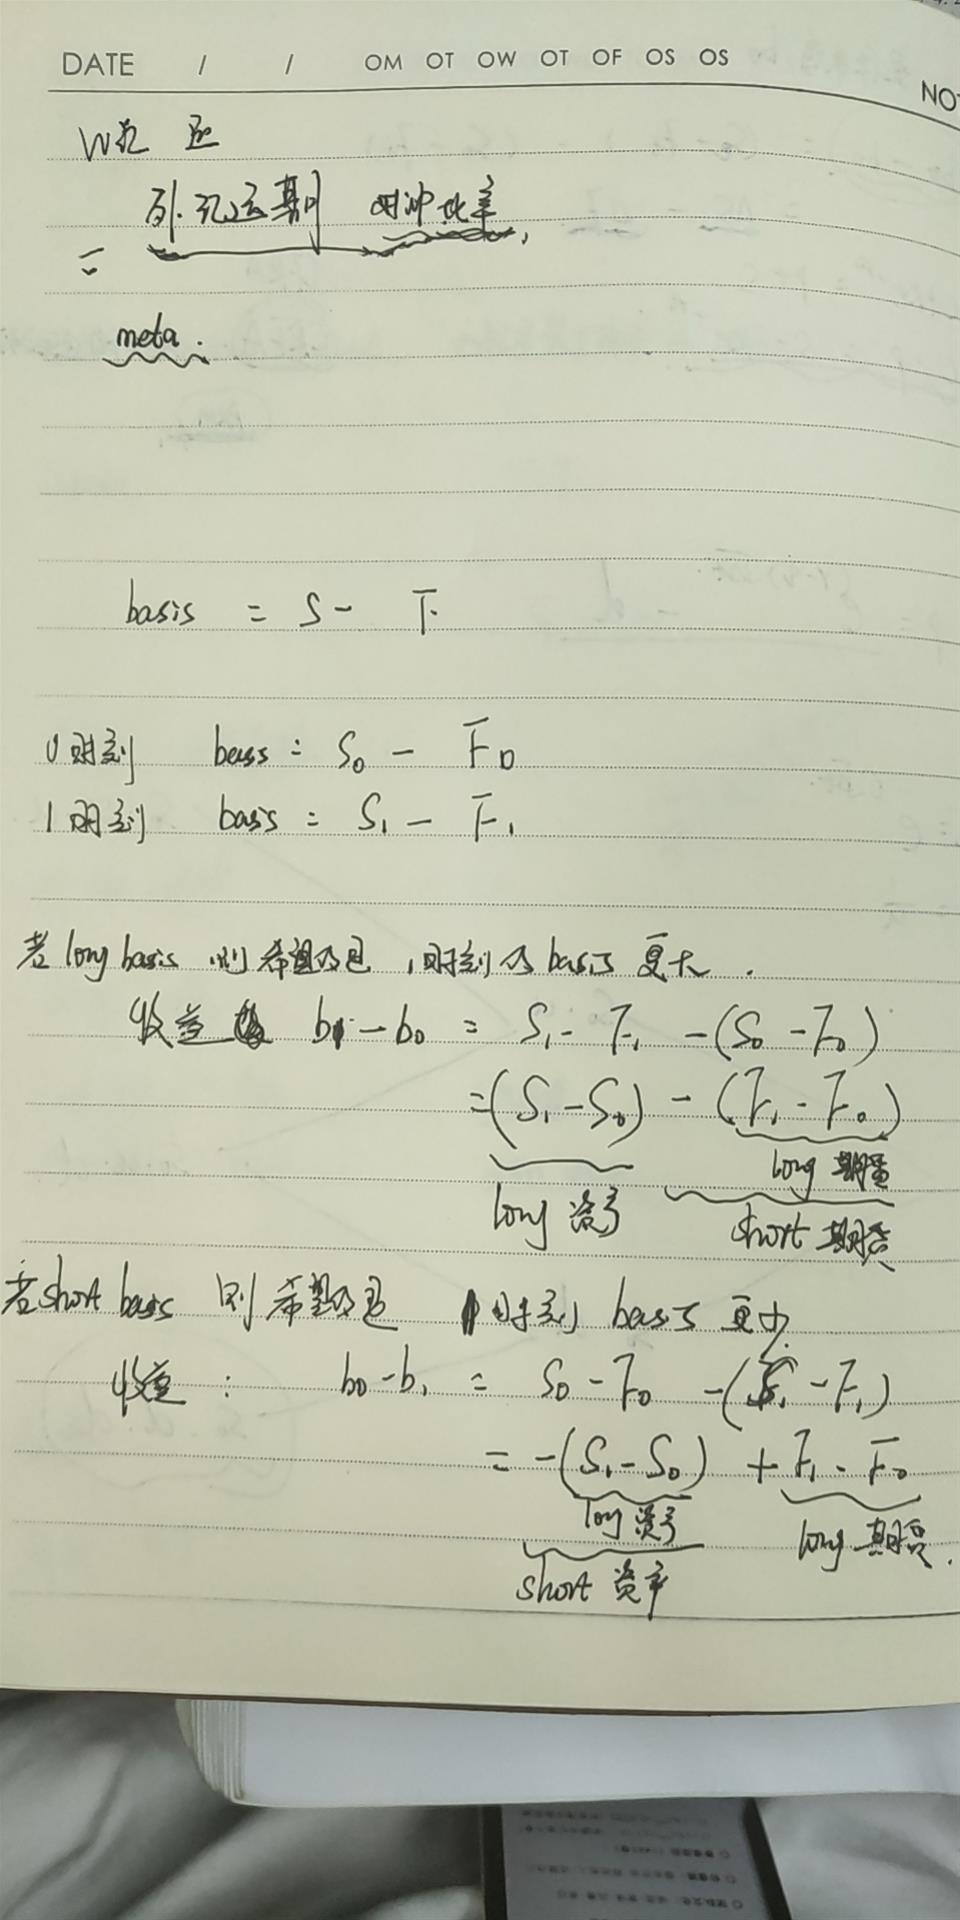 DATE / / OM OT OW OT OF OS OS
NO
对冲比率,
=
meta.
basis = S - F.
0时刻 basis = S₀ - F₀
1时刻 basis = S₁ - F₁
若long basis 则希望 1时刻的basis更大.
收益 b₁-b₀ = S₁ - F₁ -(S₀ - F₀)
=(S₁-S₀) - (F₁ - F₀)
long 期货
long 资产 short 期货
若short basis 则希望 1时刻 basis更小
收益: b₀-b₁ = S₀ - F₀ -(S₁ - F₁)
= -(S₁-S₀) + F₁ - F₀
long 资产 long 期货.
short 资产